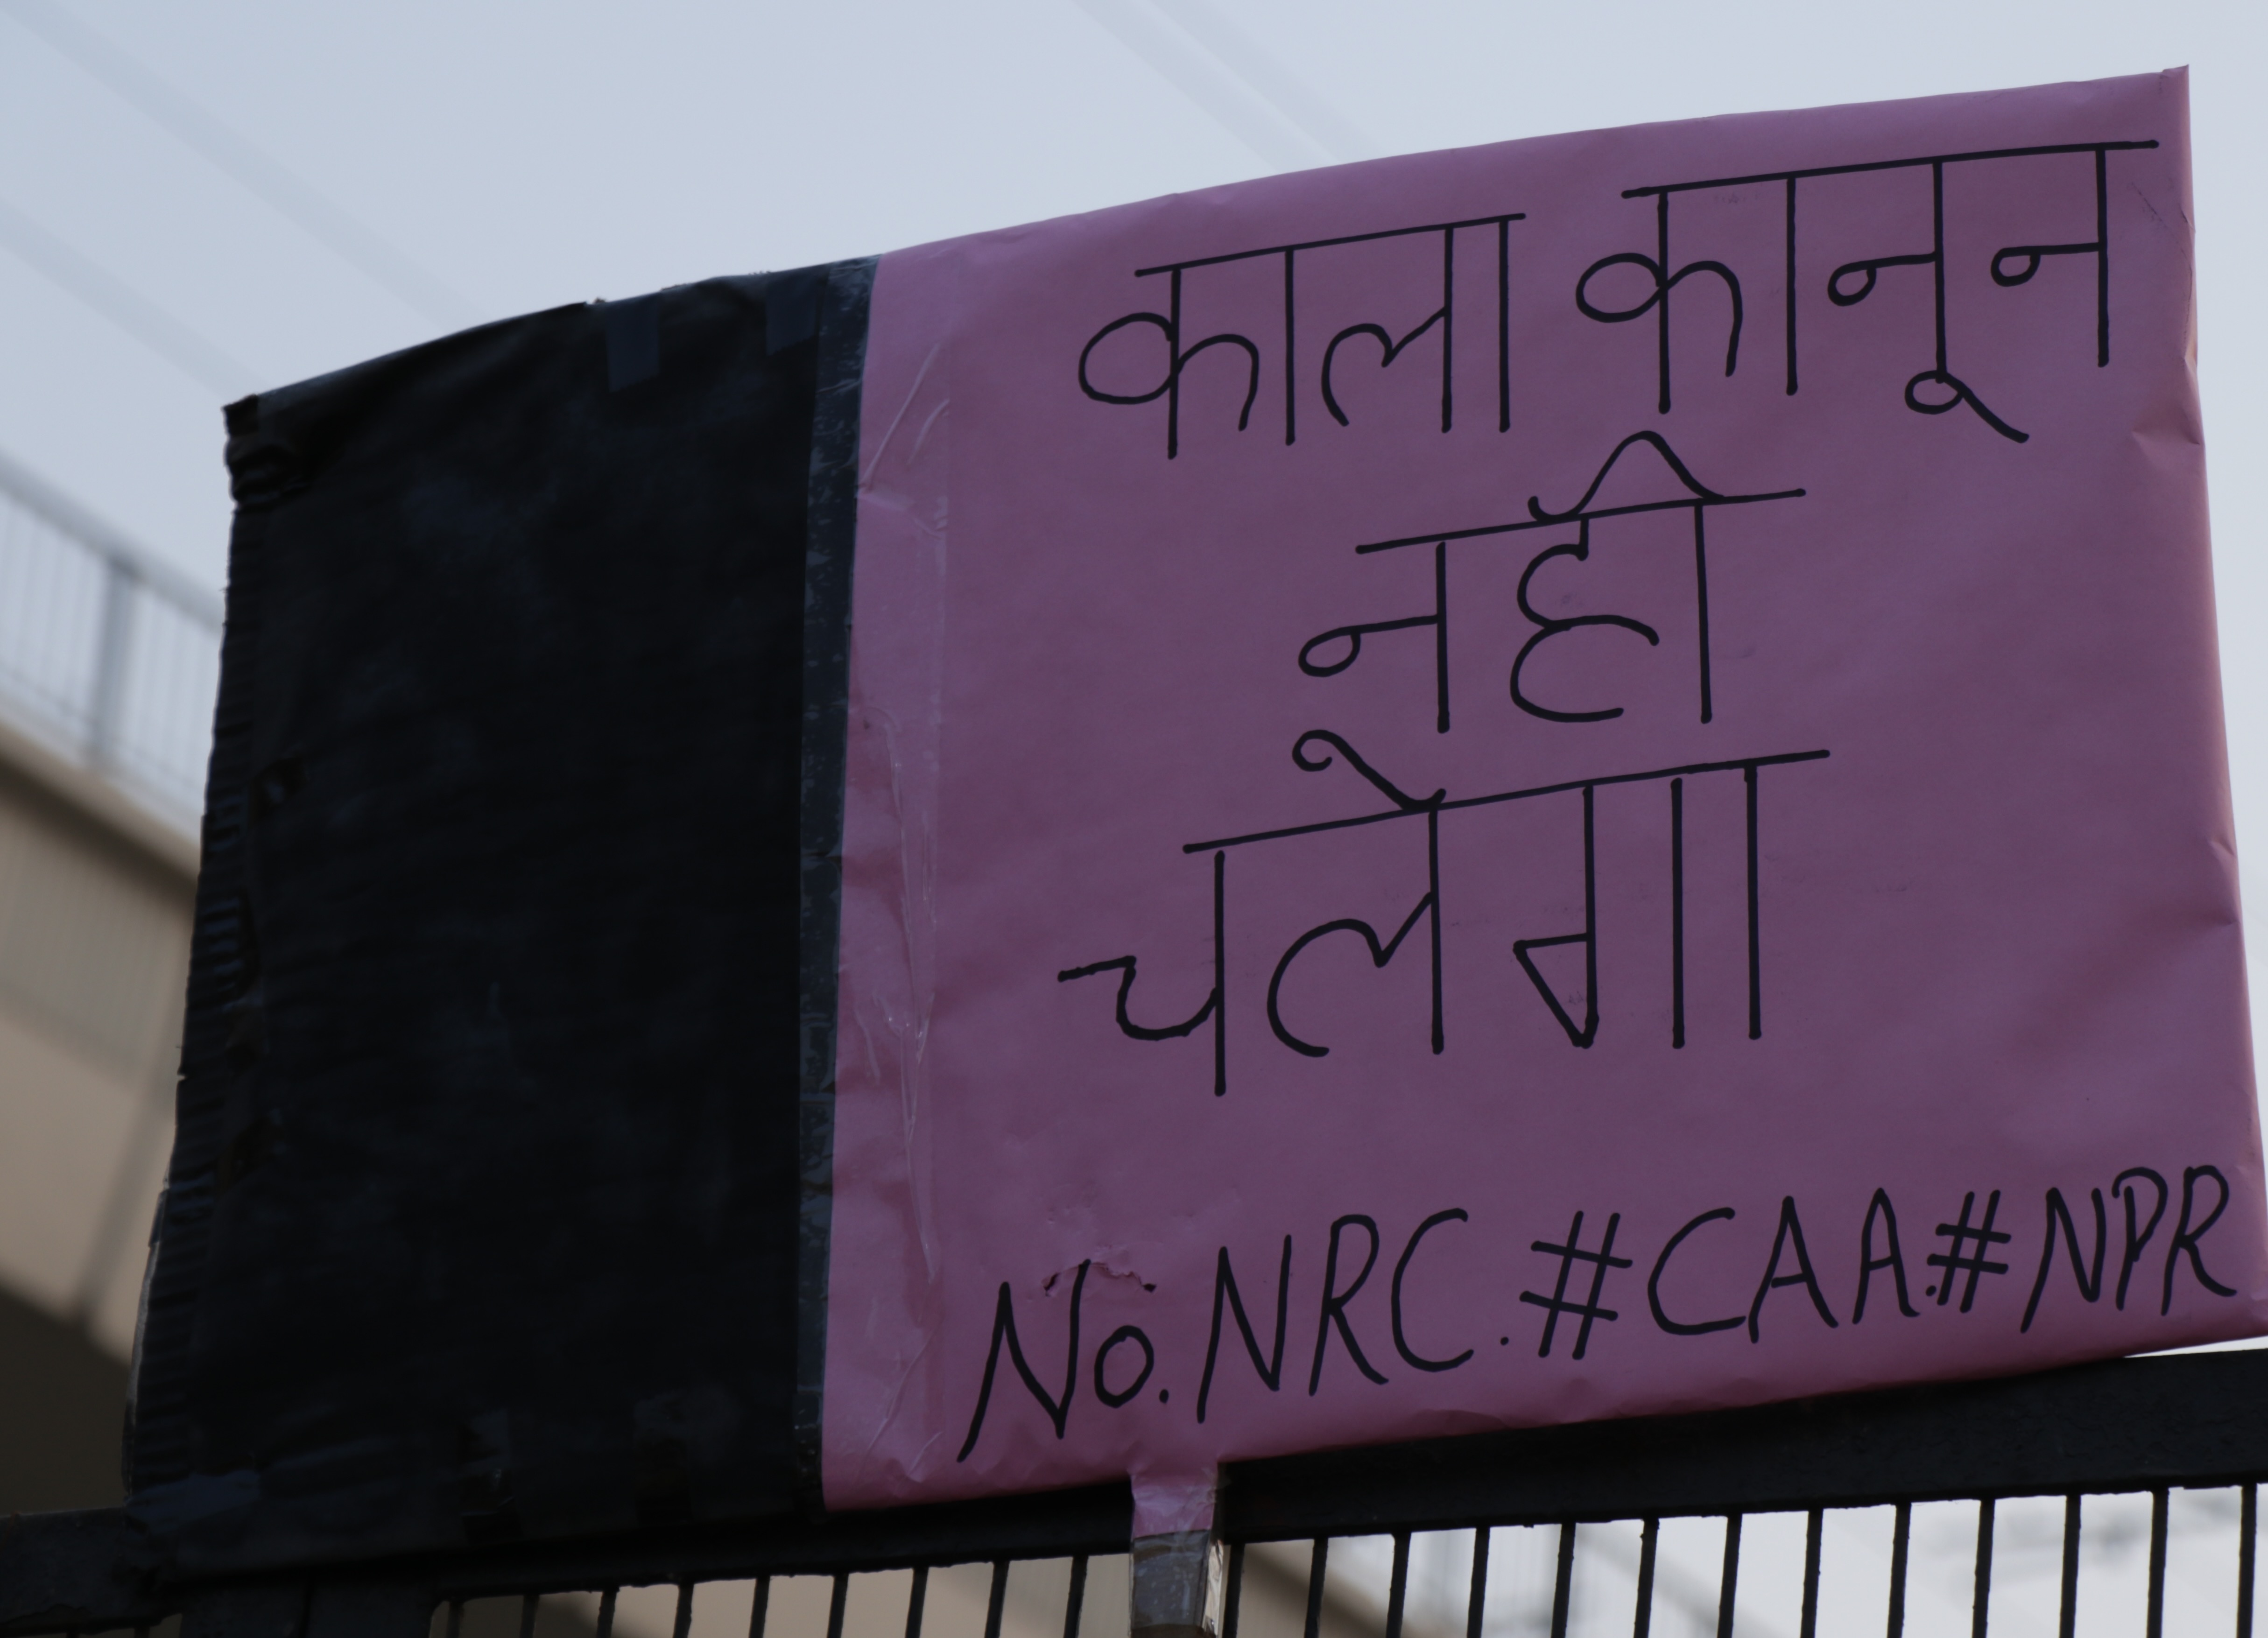 काला कानून
नही
चलेगा
No. NRC. #CAA.#NPR